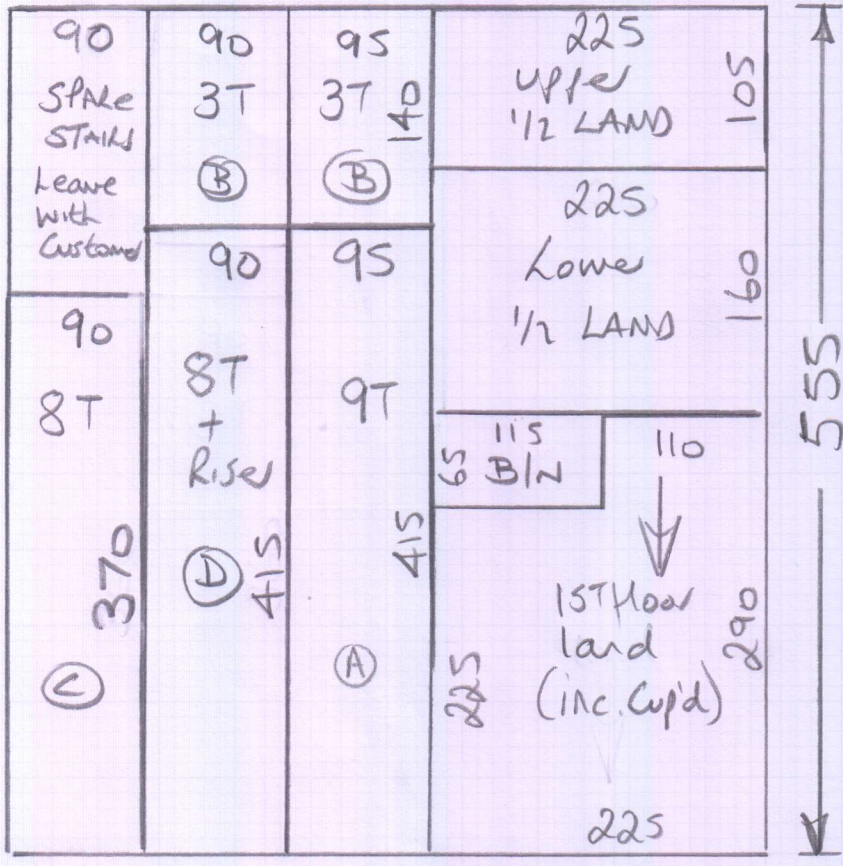 90
SPARE
STAIRS
Leave
with
Customer
90
8T
370
C
90
3T
B
90
8T
+
Riser
D
415
95
3T
140
B
95
9T
415
A
225
upper
1/2 LAND
105
225
Lower
1/2 LAND
160
115
65 B/N
110
1ST floor
land
(inc. Cup'd)
225
290
225
555